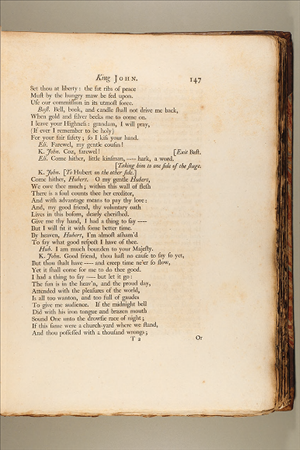 King JOHN. 147
Set thou at liberty: the fat ribs of peace
Must by the hungry maw be fed upon.
Use our commission in its utmost force.
Bast. Bell, book, and candle shall not drive me back,
When gold and silver becks me to come on.
I leave your Highness: grandam, I will pray,
(If ever I remember to be holy)
For your fair safety; so I kiss your hand.
Eli. Farewel, my gentle cousin!
K. John. Coz, farewel! [Exit Bast.
Eli. Come hither, little kinsman, ---- hark, a word.
[Taking him to one side of the stage.
K. John. [To Hubert on the other side.]
Come hither, Hubert. O my gentle Hubert,
We owe thee much; within this wall of flesh
There is a soul counts thee her creditor,
And with advantage means to pay thy love:
And, my good friend, thy voluntary oath
Lives in this bosom, dearly cherished.
Give me thy hand, I had a thing to say ----
But I will fit it with some better time.
By heaven, Hubert, I'm almost asham'd
To say what good respect I have of thee.
Hub. I am much bounden to your Majesty.
K. John. Good friend, thou hast no cause to say so yet,
But thou shalt have ---- and creep time ne'er so slow,
Yet it shall come for me to do thee good.
I had a thing to say ---- but let it go:
The sun is in the heav'n, and the proud day,
Attended with the pleasures of the world,
Is all too wanton, and too full of gaudes
To give me audience. If the midnight bell
Did with his iron tongue and brazen mouth
Sound One unto the drowsie race of night;
If this same were a church-yard where we stand,
And thou possessed with a thousand wrongs;
T 2 Or